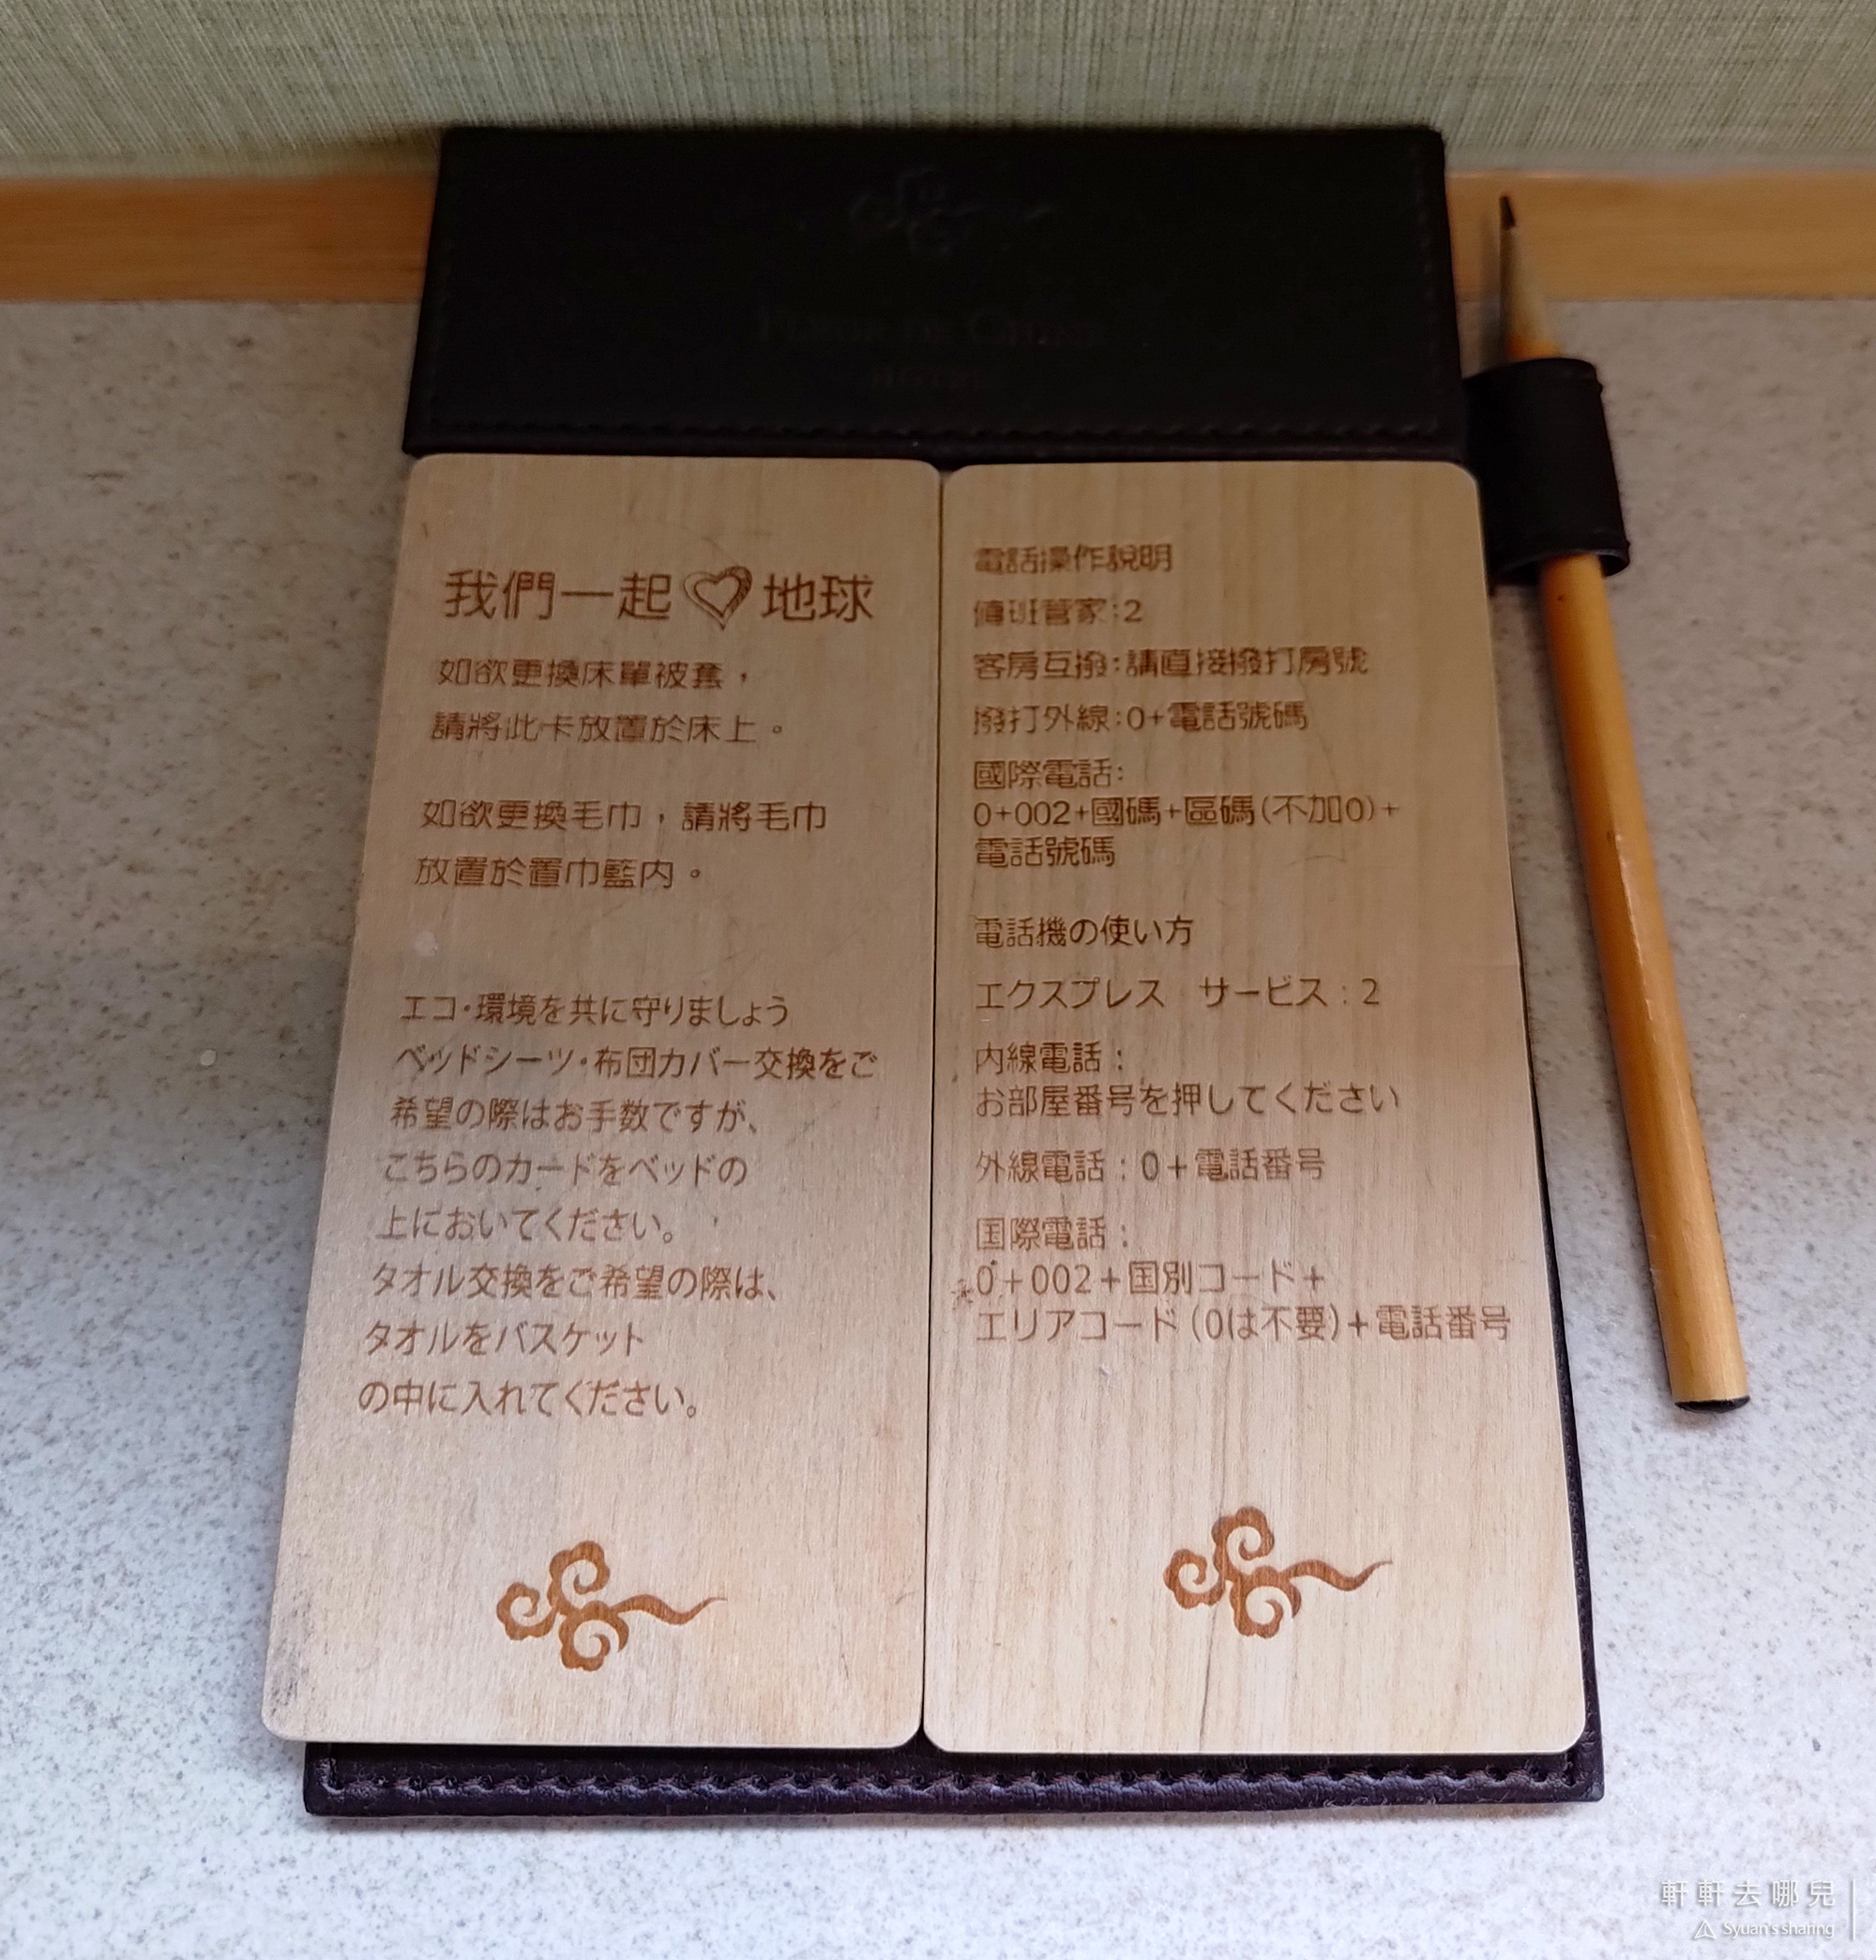 我們一起地球
如欲更換床單被套，
請將此卡放置於床上。
如欲更換毛巾，請將毛巾
放置於置巾籃內。
エコ・環境を共に守りましょう
ベッドシーツ・布団カバー交換をご
希望の際はお手数ですが、
こちらのカードをベッドの
上においてください。
タオル交換をご希望の際は、
タオルをバスケット
の中に入れてください。
電話操作說明
值班管家:2
客房互撥:請直接撥打房號
撥打外線:0+電話號碼
國際電話:
0+002+國碼+區碼(不加0)+
電話號碼
電話機の使い方
エクスプレス サービス：2
内線電話：
お部屋番号を押してください
外線電話：0+電話番号
国際電話：
0+002+国別コード+
エリアコード(0は不要)+電話番号
軒軒去哪兒
Syuan's sharing